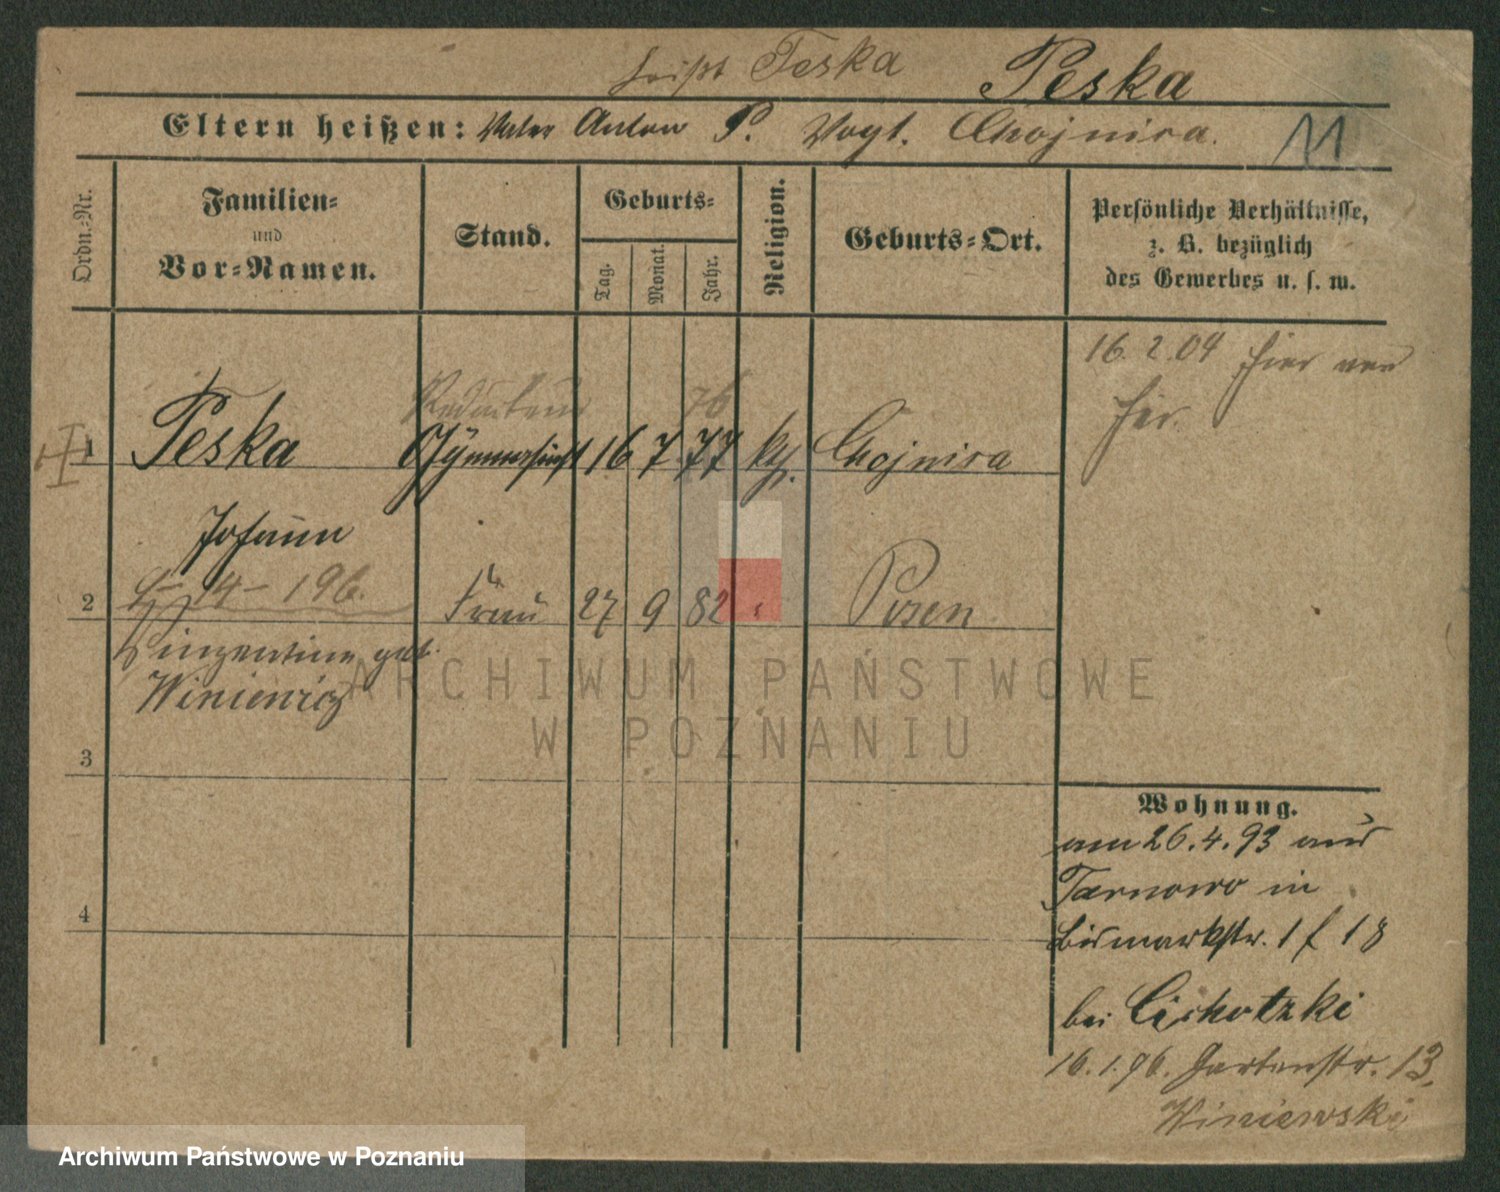 heißt Teska Peska
Eltern heißen: Vater Anton P. Vogt. Chojnica.
11
Ordn.-Nr.
Familien-
und
Vor-Namen.
Stand.
Geburts-
Tag.
Monat.
Jahr.
Religion.
Geburts-Ort.
Persönliche Verhältnisse,
z. B. bezüglich
des Gewerbes u. s. w.
16. 2. 04 hier
Redacteur 76
1 Peska Gymnasiast 16 7 77 kth. Chojnica
Johann
14 - 196.
2 Frau 27 9 82 Posen
Vinzentine geb.
Winiewicz
3
4
Wohnung.
am 26. 4. 93 aus
Tarnowo in
Bismarkstr. 1 f 18
bei Cichotzki
16. 1. 96. Gartenstr. 13,
Winiewski
ARCHIWUM PAŃSTWOWE
W POZNANIU
Archiwum Państwowe w Poznaniu